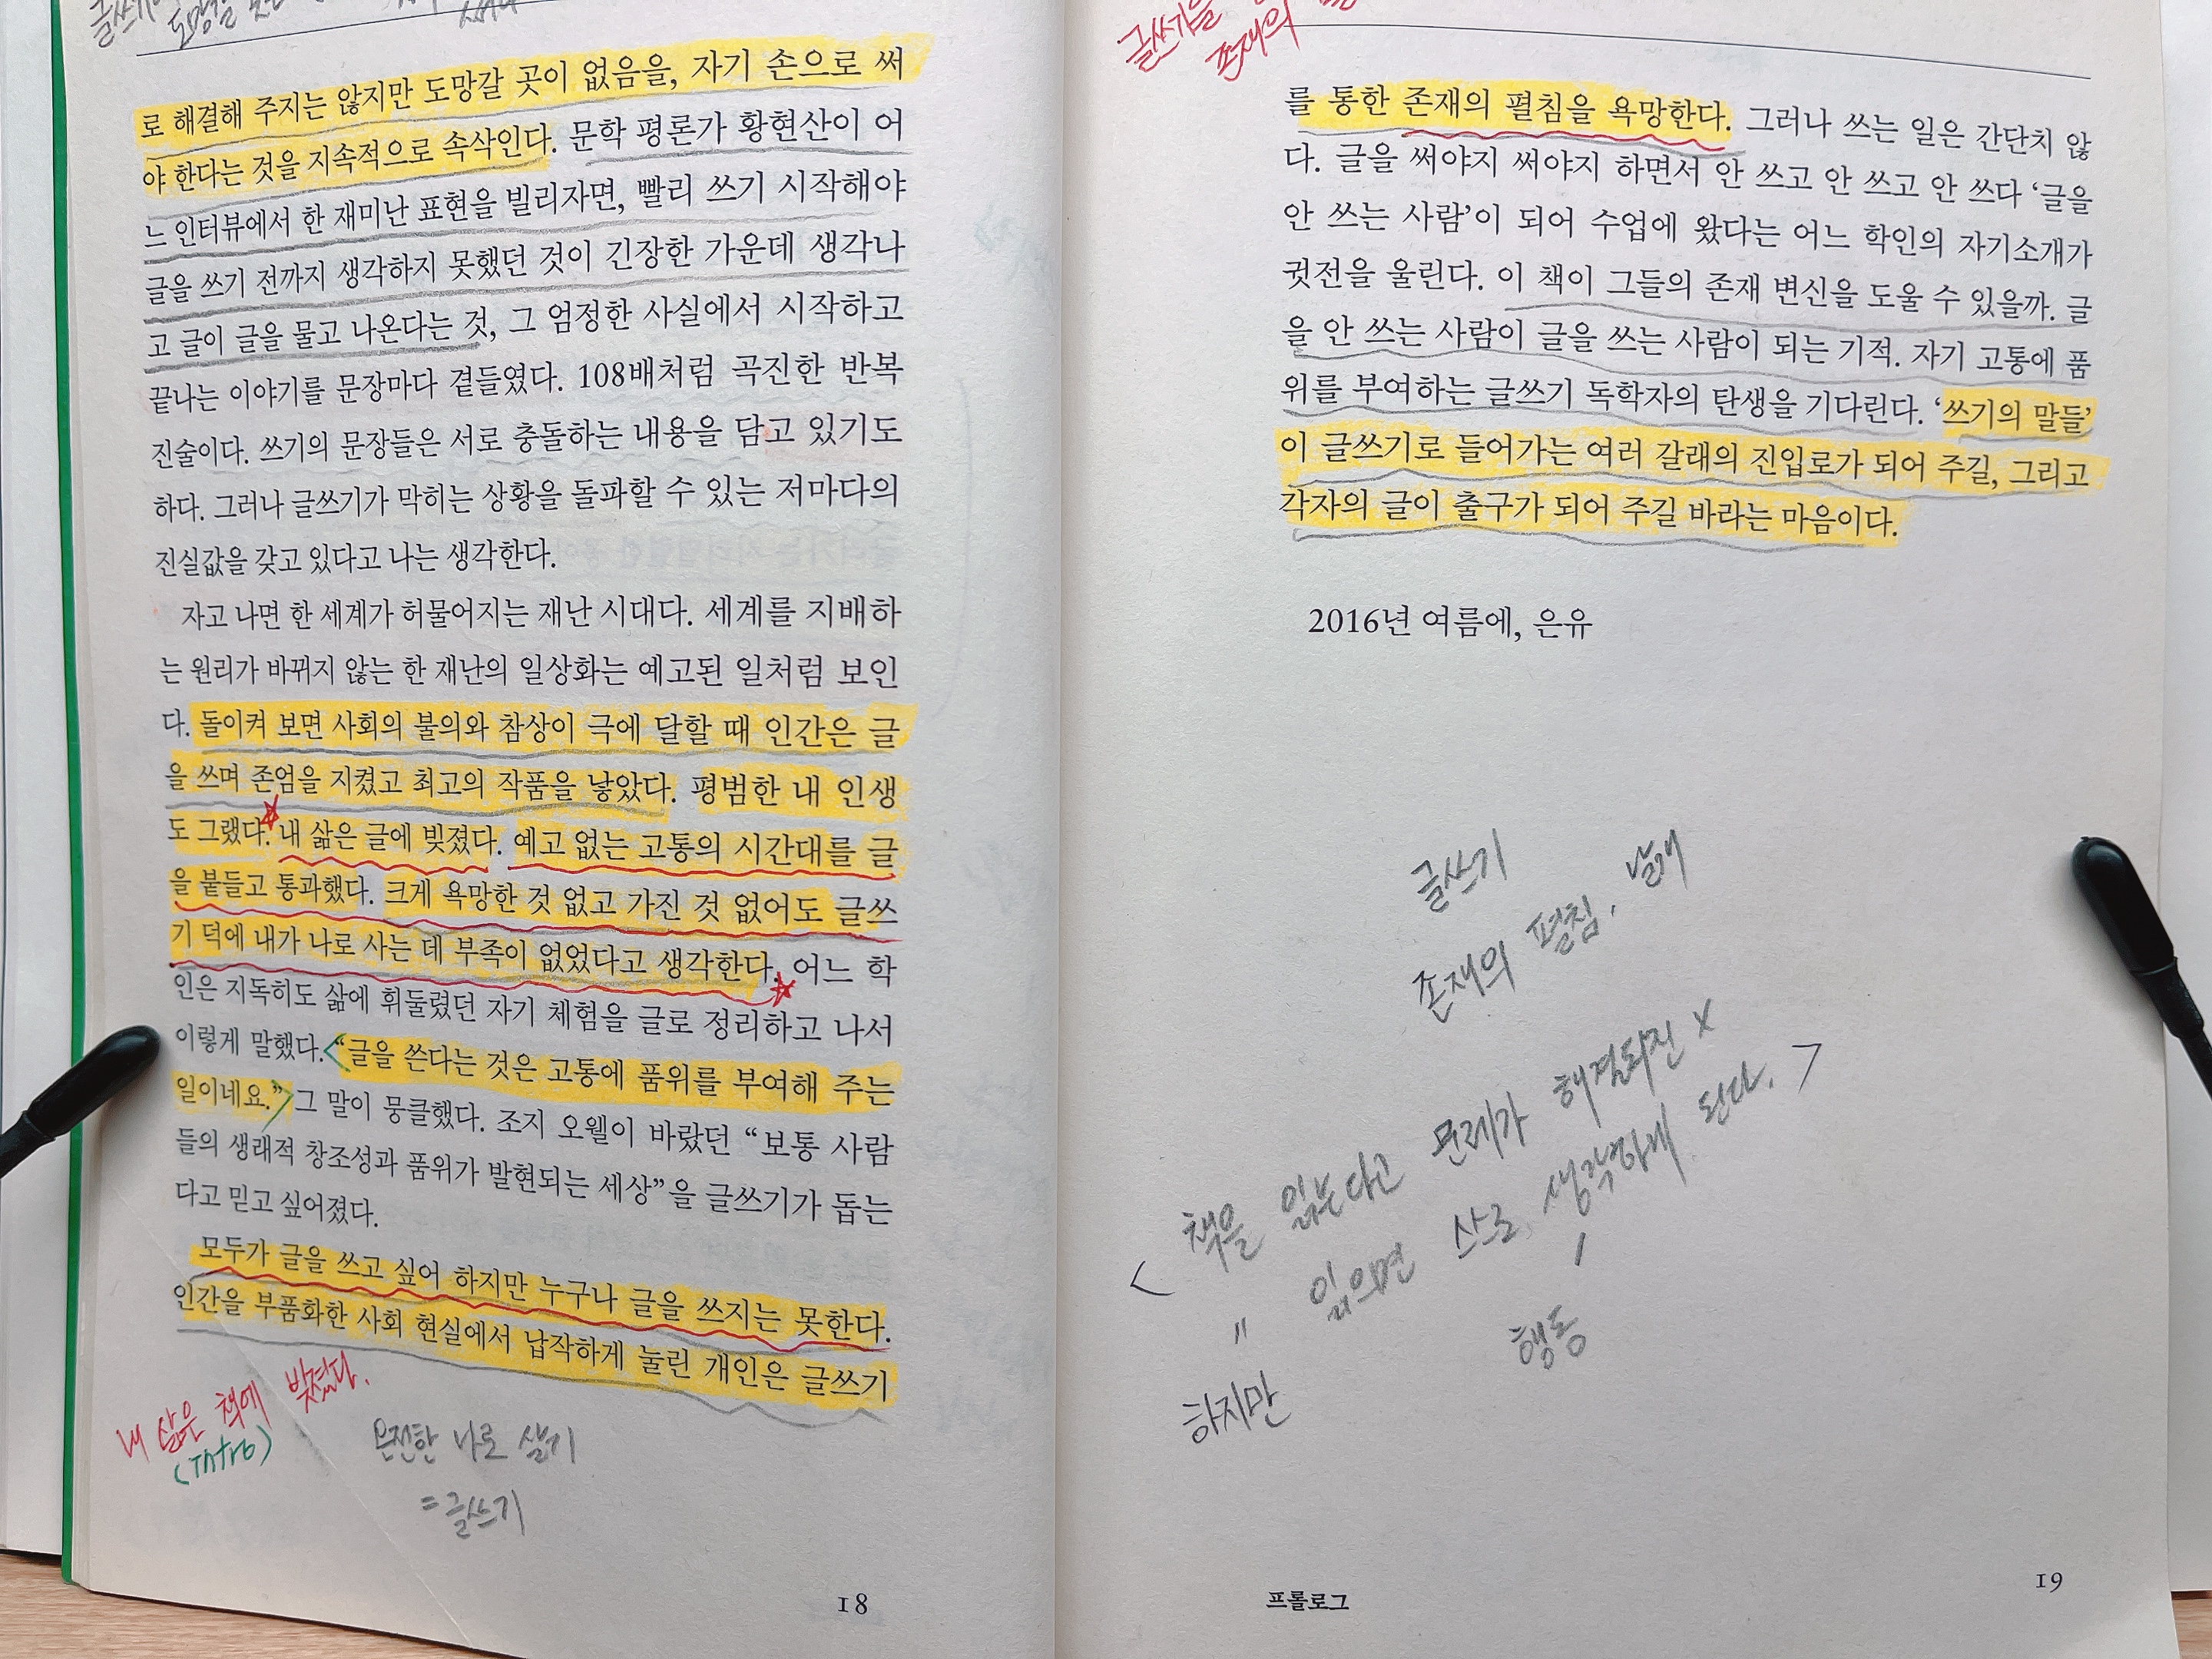 로 해결해 주지는 않지만 도망갈 곳이 없음을, 자기 손으로 써
야 한다는 것을 지속적으로 속삭인다. 문학 평론가 황현산이 어
느 인터뷰에서 한 재미난 표현을 빌리자면, 빨리 쓰기 시작해야
글을 쓰기 전까지 생각하지 못했던 것이 긴장한 가운데 생각나
고 글이 글을 물고 나온다는 것, 그 엄정한 사실에서 시작하고
끝나는 이야기를 문장마다 곁들였다. 108배처럼 곡진한 반복
진술이다. 쓰기의 문장들은 서로 충돌하는 내용을 담고 있기도
하다. 그러나 글쓰기가 막히는 상황을 돌파할 수 있는 저마다의
진실값을 갖고 있다고 나는 생각한다.
자고 나면 한 세계가 허물어지는 재난 시대다. 세계를 지배하
는 원리가 바뀌지 않는 한 재난의 일상화는 예고된 일처럼 보인
다. 돌이켜 보면 사회의 불의와 참상이 극에 달할 때 인간은 글
을 쓰며 존엄을 지켰고 최고의 작품을 낳았다. 평범한 내 인생
도 그랬다. 내 삶은 글에 빚졌다. 예고 없는 고통의 시간대를 글
을 붙들고 통과했다. 크게 욕망한 것 없고 가진 것 없어도 글쓰
기 덕에 내가 나로 사는 데 부족이 없었다고 생각한다. 어느 학
인은 지독히도 삶에 휘둘렸던 자기 체험을 글로 정리하고 나서
이렇게 말했다. “글을 쓴다는 것은 고통에 품위를 부여해 주는
일이네요.” 그 말이 뭉클했다. 조지 오웰이 바랐던 “보통 사람
들의 생래적 창조성과 품위가 발현되는 세상”을 글쓰기가 돕는
다고 믿고 싶어졌다.
모두가 글을 쓰고 싶어 하지만 누구나 글을 쓰지는 못한다.
인간을 부품화한 사회 현실에서 납작하게 눌린 개인은 글쓰기
내 삶은 책에 빚졌다.
(Intro)
온전한 나로 살기
=글쓰기
18
존재의
를 통한 존재의 펼침을 욕망한다. 그러나 쓰는 일은 간단치 않
다. 글을 써야지 써야지 하면서 안 쓰고 안 쓰고 안 쓰다 ‘글을
안 쓰는 사람’이 되어 수업에 왔다는 어느 학인의 자기소개가
귓전을 울린다. 이 책이 그들의 존재 변신을 도울 수 있을까. 글
을 안 쓰는 사람이 글을 쓰는 사람이 되는 기적. 자기 고통에 품
위를 부여하는 글쓰기 독학자의 탄생을 기다린다. ‘쓰기의 말들’
이 글쓰기로 들어가는 여러 갈래의 진입로가 되어 주길, 그리고
각자의 글이 출구가 되어 주길 바라는 마음이다.
2016년 여름에, 은유
글쓰기
존재의 펼침, 날개
< 책을 읽는다고 문제가 해결되진 x
〃 읽으면 스스로 생각하게 된다. >
하지만
행동
프롤로그
19